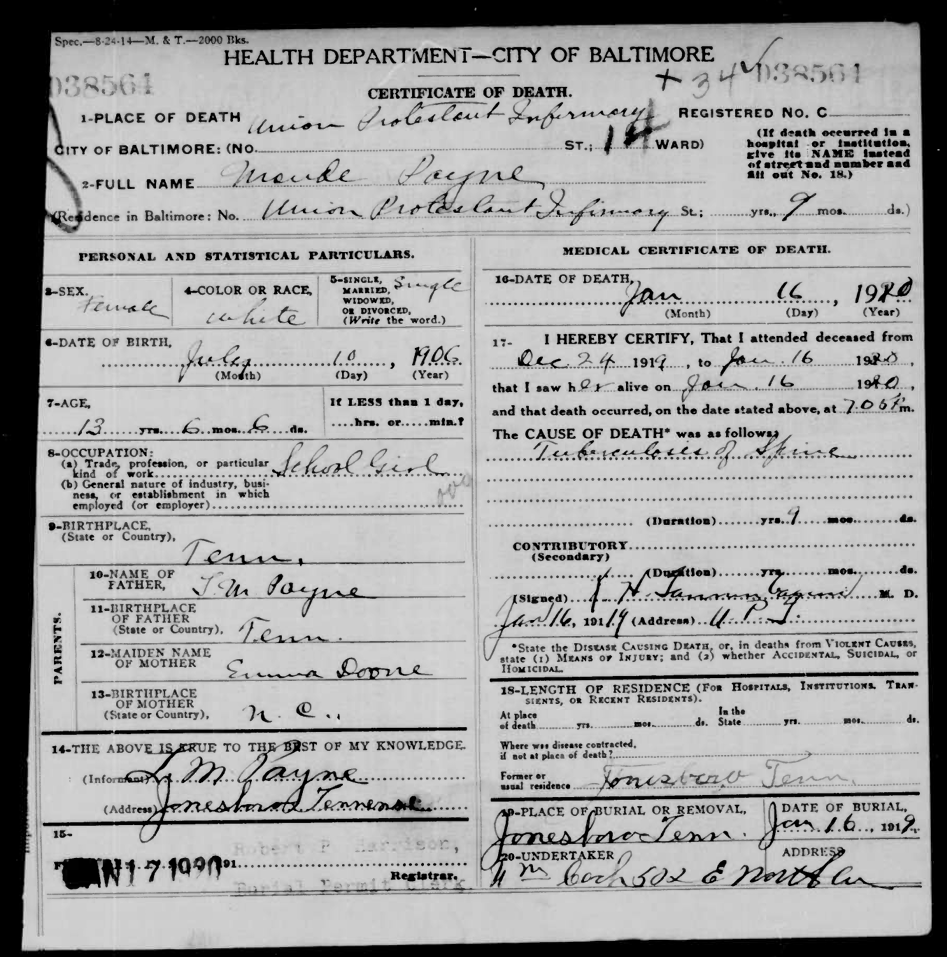 Spec.—8-24-14—M. & T.—2000 Bks.
HEALTH DEPARTMENT—CITY OF BALTIMORE
D38561 + 34 D38561
CERTIFICATE OF DEATH.
1-PLACE OF DEATH Union Protestant Infirmary REGISTERED No. C
CITY OF BALTIMORE: (No. ST.; 14 WARD)
(If death occurred in a hospital or institution, give its NAME instead of street and number and fill out No. 18.)
2-FULL NAME Maude Payne
(Residence in Baltimore: No. Union Protestant Infirmary St.; yrs. 9 mos. ds.)
PERSONAL AND STATISTICAL PARTICULARS.
3-SEX, Female
4-COLOR OR RACE, White
5-SINGLE, MARRIED, WIDOWED, OR DIVORCED, (Write the word.) Single
6-DATE OF BIRTH, July 10, 1906
(Month) (Day) (Year)
7-AGE, 13 yrs. 6 mos. 6 ds.
If LESS than 1 day,
hrs. or min.?
8-OCCUPATION:
(a) Trade, profession, or particular
kind of work School Girl
(b) General nature of industry, busi-
ness, or establishment in which
employed (or employer)
9-BIRTHPLACE,
(State or Country), Tenn.
PARENTS.
10-NAME OF
FATHER, Payne
11-BIRTHPLACE
OF FATHER
(State or Country), Tenn.
12-MAIDEN NAME
OF MOTHER Emma Doone
13-BIRTHPLACE
OF MOTHER
(State or Country), N. C.
14-THE ABOVE IS TRUE TO THE BEST OF MY KNOWLEDGE.
(Informant) M Payne
(Address) Jonesboro Tennessee
15-
JAN 17 1920 191
Robert P Harrison,
Registrar.
Burial Permit Clerk.
MEDICAL CERTIFICATE OF DEATH.
16-DATE OF DEATH, Jan 16, 1920
(Month) (Day) (Year)
17- I HEREBY CERTIFY, That I attended deceased from
Dec. 24 1919, to Jan. 16 1920,
that I saw her alive on Jan 16 1920,
and that death occurred, on the date stated above, at 7.05 P m.
The CAUSE OF DEATH* was as follows:
Tuberculosis of Spine
(Duration) yrs. 9 mos. ds.
CONTRIBUTORY
(Secondary)
(Duration) yrs. mos. ds.
(Signed) M. D.
Jan 16, 1919 (Address) U. P. I.
*State the DISEASE CAUSING DEATH, or, in deaths from VIOLENT CAUSES,
state (1) MEANS OF INJURY; and (2) whether ACCIDENTAL, SUICIDAL, or
HOMICIDAL.
18-LENGTH OF RESIDENCE (FOR HOSPITALS, INSTITUTIONS, TRAN-
SIENTS, OR RECENT RESIDENTS).
At place
of death yrs. mos. ds. In the
State yrs. mos. ds.
Where was disease contracted,
if not at place of death?
Former or
usual residence Jonesboro Tenn.
19-PLACE OF BURIAL OR REMOVAL, Jonesboro Tenn.
DATE OF BURIAL, Jan 16, 1919
20-UNDERTAKER ADDRESS
Wm Cook 502 E North Av